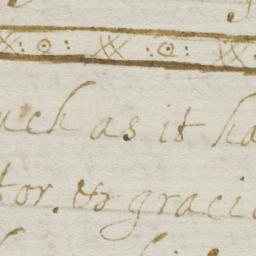 uch as it ha
tor. & graci